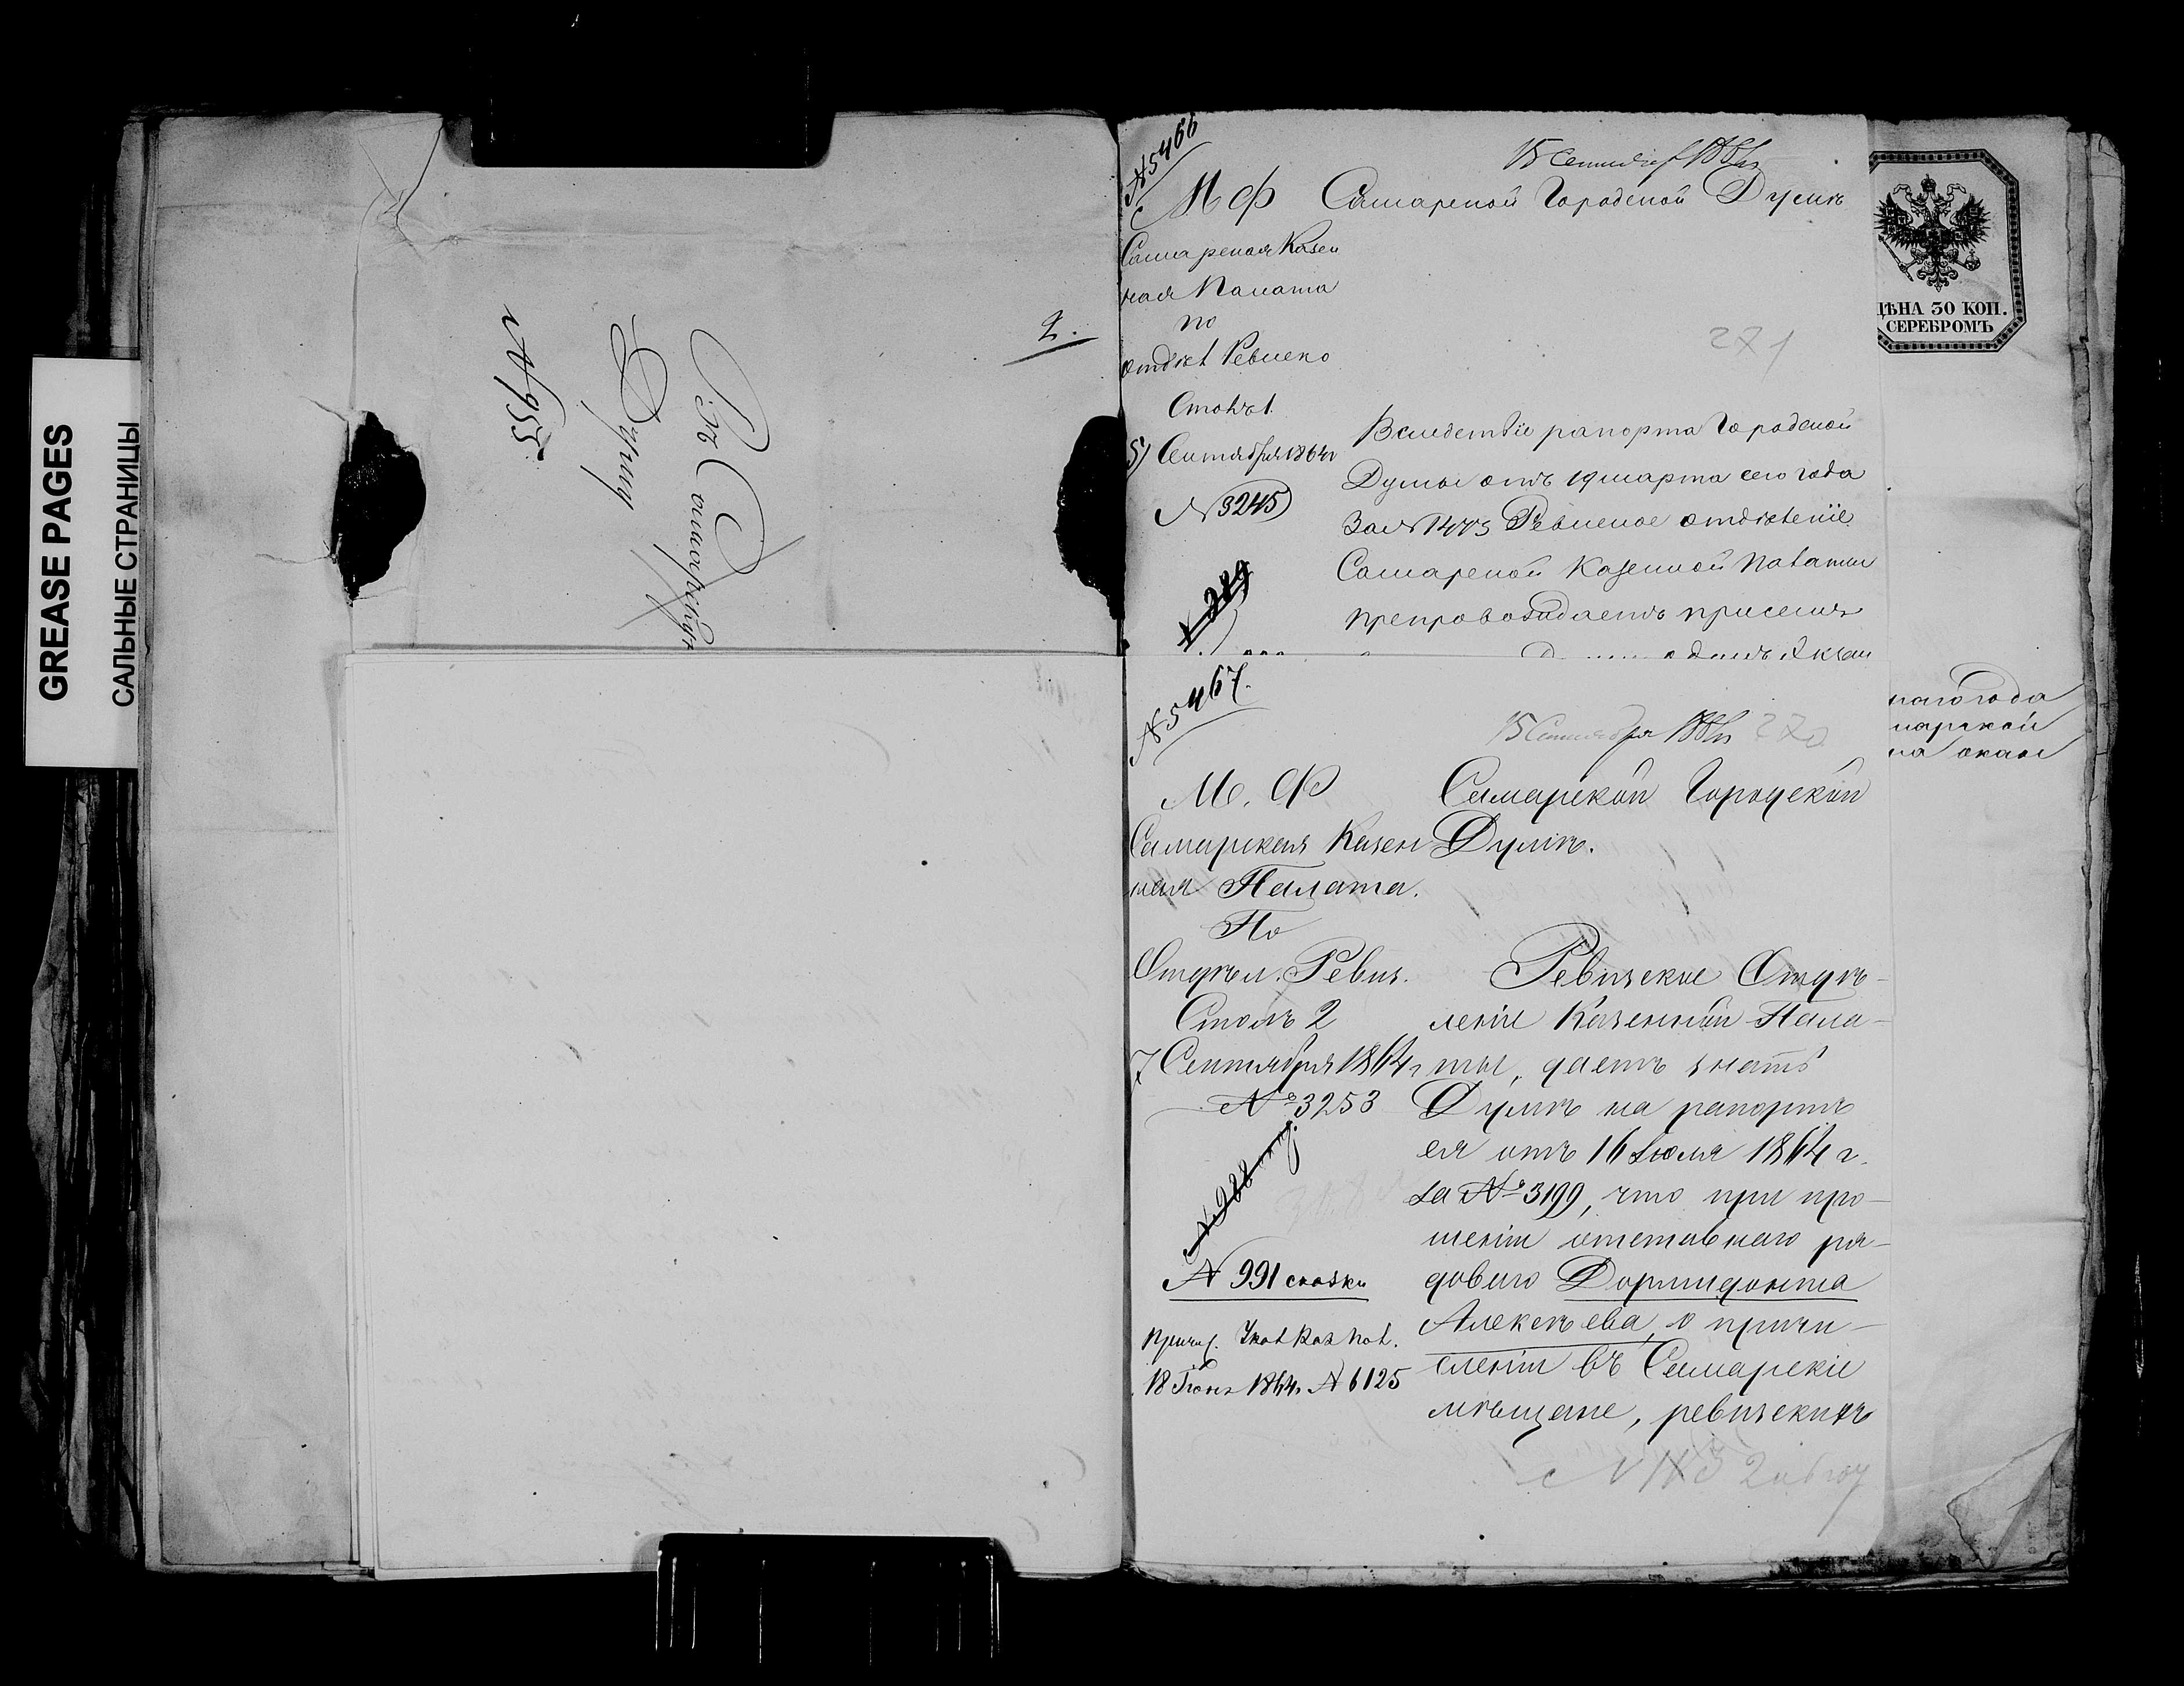 GREASE PAGES
САЛЬНЫЕ СТРАНИЦЫ
2.
Въ Самарскую
Думу
№ 955
№ 5466
15 Сентября 1864
М Ф
Самарская Казен
ная Палата
по
отдѣл Ревизско
Столъ 1.
5 Сентября 1864 г
№ 3245
№ 289
Самарской Городской Думѣ
271
Вследствіе рапорта Городской
Думы отъ 19 марта сего года
За № 1473 Ревизское отдѣленіе
Самарской Казенной Палаты
препровождаетъ присемъ
ЦѢНА 30 КОП.
СЕРЕБРОМЪ
наго года
марской
на окла
№ 5467.
15 Сентября 1864
270
М. Ф
Самарская Казен
ная Палата.
По
Отдѣл. Ревиз.
Столъ 2
7 Сентября 1864 г
№ 3253
№ 288
№ 991 сказки
Причис. Указ Каз Пал.
18 Іюня 1864 г № 6125
Самарской Городской
Думѣ.
Ревизское Отдѣ-
леніе Казенной Пала-
ты, даетъ знать
Думѣ на рапортъ
ея отъ 16 Іюля 1864 г.
за № 3199, что при про-
шеніи отставнаго ря-
доваго Дормидонта
Алексѣева, о причи-
сленіи въ Самарскіе
мѣщане, ревизскихъ